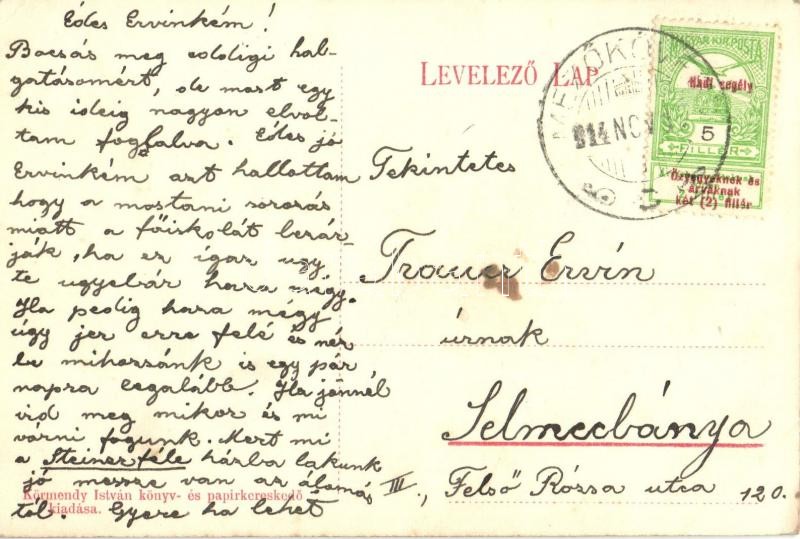 Édes Ervinkém!
Bocsás meg eddigi hal-
gatásomért, de most egy
kis ideig nagyon elvol-
tam foglalva. Édes jó
Ervinkém azt hallottam
hogy a mostani sorozás
miatt a főiskolát bezár-
ják, ha ez igaz úgy
te ugyebár haza mégy.
Ha pedig haza mégy
úgy jer erre felé és néz
be mihozzánk is egy pár
napra legalább. Ha jönnél
ird meg mikor és mi
várni fogunk. Mert mi
a Steiner féle házba lakunk
jó messze van az álomás
tól. Gyere ha lehet
Körmendy István könyv- és papirkereskedő
kiadása.
LEVELEZŐ LAP
MEZŐKÖV
914 NOV
MAGYAR KIR. POSTA
Hadi segély
5
FILLÉR
Özvegyeknek és
árváknak
két (2) fillér
Tekintetes
Trauer Ervín
úrnak
Selmecbánya
III., Felső Rózsa utca 120.